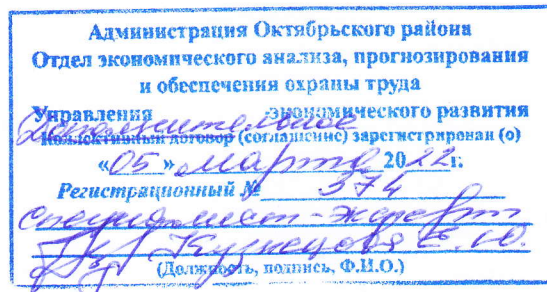 Администрация Октябрьского района
Отдел экономического анализа, прогнозирования
и обеспечения охраны труда
Управления экономического развития
Дополнительное
Коллективный договор (соглашение) зарегистрирован (о)
«05» марта 2022г.
Регистрационный № 374
специалист-эксперт
Кузнецова Е.Ю.
(Должность, подпись, Ф.И.О.)